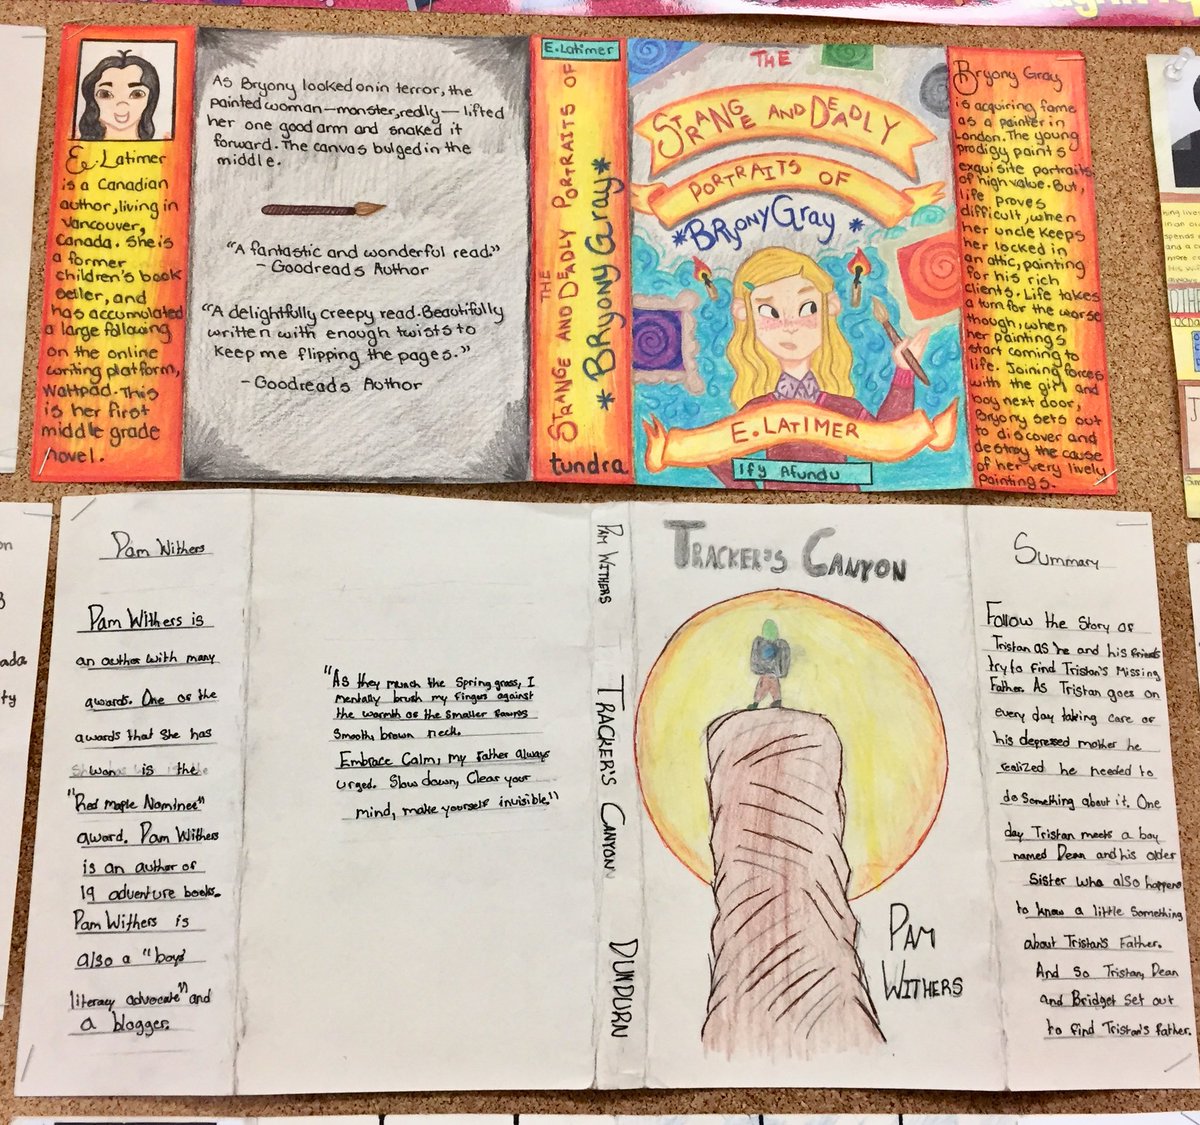 E. Latimer
is a Canadian
author, living in
Vancouver,
Canada. She is
a former
children's book
seller, and
has accumulated
a large following
on the online
writing platform,
Wattpad. This
is her first
middle grade
novel.
As Bryony looked on in terror, the
painted woman—monster, really—lifted
her one good arm and snaked it
forward. The canvas bulged in the
middle.
"A fantastic and wonderful read."
- Goodreads Author
"A delightfully creepy read. Beautifully
written with enough twists to
keep me flipping the pages."
- Goodreads Author
E. Latimer
THE
STRANGE AND DEADLY PORTRAITS OF
*Bryony Gray*
tundra
THE
STRANGE AND DEADLY
PORTRAITS OF
*BRyonyGray*
E. LATIMER
Ify Afundu
Bryony Gray
is acquiring fame
as a painter in
London. The young
prodigy paints
exquisite portraits
of high value. But,
life proves
difficult, when
her uncle keeps
her locked in
an attic, painting
for his rich
clients. Life takes
a turn for the worse
though, when
her paintings
start coming to
life. Joining forces
with the girl and
boy next door,
Bryony sets out
to discover and
destroy the cause
of her very lively
paintings.
Pam Withers
Pam Withers is
an author with many
awards. One of the
awards that she has
won is the
"Red Maple Nominee"
award. Pam Withers
is an author of
19 adventure books.
Pam Withers is
also a "boys'
literacy advocate" and
a blogger.
"As they munch the Spring grass, I
mentally brush my fingers against
the warmth of the smaller fawns
smooth, brown neck.
Embrace Calm, my father always
urged. Slow down, Clear your
mind, make yourself invisible."
PAM WITHERS
TRACKER'S CANYON
DUNDURN
TRACKER'S CANYON
PAM
WITHERS
Summary
Follow the Story of
Tristan as he and his friends
try to find Tristan's Missing
Father. As Tristan goes on
every day taking care of
his depressed mother he
realized he needed to
do Something about it. One
day Tristan meets a boy
named Dean and his older
Sister who also happens
to know a little Something
about Tristan's Father.
And So Tristan, Dean
and Bridget Set out
to find Tristan's father.